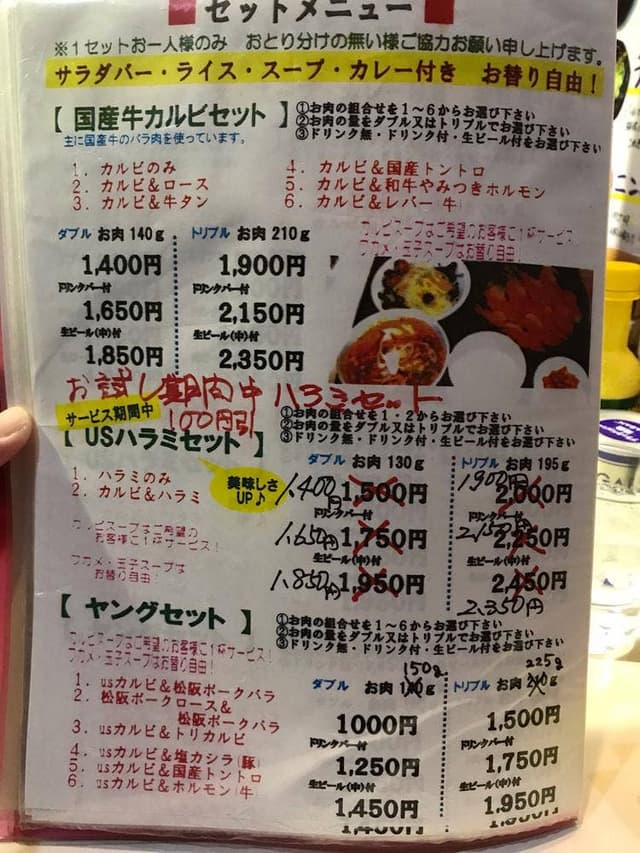 セットメニュー
※1セットお一人様のみ　おとり分けの無い様ご協力お願い申し上げます。
サラダバー・ライス・スープ・カレー付き　お替り自由！
【国産牛カルビセット】
主に国産牛のバラ肉を使っています。
①お肉の組合せを1～6からお選び下さい
②お肉の量をダブル又はトリプルでお選び下さい
③ドリンク無・ドリンク付・生ビール付をお選び下さい
1. カルビのみ
2. カルビ＆ロース
3. カルビ＆牛タン
4. カルビ＆国産トントロ
5. カルビ＆和牛やみつきホルモン
6. カルビ＆レバー(牛)
カルビスープはご希望のお客様に1杯サービス
ワカメ・玉子スープはお替り自由！
ダブル お肉140g
1,400円
ドリンクバー付
1,650円
生ビール(中)付
1,850円
トリプル お肉210g
1,900円
ドリンクバー付
2,150円
生ビール(中)付
2,350円
お試し期間中 ハラミセット
100円引
サービス期間中
【USハラミセット】
①お肉の組合せを1・2からお選び下さい
②お肉の量をダブル又はトリプルでお選び下さい
③ドリンク無・ドリンク付・生ビール付をお選び下さい
1. ハラミのみ
2. カルビ＆ハラミ
美味しさ
UP♪
カルビスープはご希望の
お客様に1杯サービス！
ワカメ・玉子スープは
お替り自由！
ダブル お肉130g
1,400円 1,500円
ドリンクバー付
1,650円 1,750円
生ビール(中)付
1,850円 1,950円
トリプル お肉195g
1,900円
2,000円
ドリンクバー付
2,150円
2,250円
生ビール(中)付
2,450円
2,350円
【ヤングセット】
カルビスープはご希望のお客様に1杯サービス！
ワカメ・玉子スープはお替り自由！
①お肉の組合せを1～6からお選び下さい
②お肉の量をダブル又はトリプルでお選び下さい
③ドリンク無・ドリンク付・生ビール付をお選び下さい
1. usカルビ＆松阪ポークバラ
2. 松阪ポークロース＆
松阪ポークバラ
3. usカルビ＆トリカルビ
4. usカルビ＆塩カシラ(豚)
5. usカルビ＆国産トントロ
6. usカルビ＆ホルモン(牛)
150g
ダブル お肉140g
1000円
ドリンクバー付
1,250円
生ビール(中)付
1,450円
225g
トリプル お肉210g
1,500円
ドリンクバー付
1,750円
生ビール(中)付
1,950円